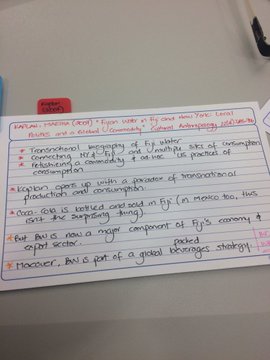 Kaplan
(2007)
KAPLAN, MARTHA (2007) "Fijian Water in Fiji and New York: Local
Politics and a Global Commodity" Cultural Anthropology
* Transnational biography of Fiji Water
* Connecting NY & Fiji and multiple sites of consumption
* Fetishizing a commodity & ad-hoc US practices of
consumption.
* Kaplan opens up with a paradox of transnational
production and consumption.
* Coca-Cola is bottled and sold in Fiji (in Mexico too, this
isn't the surprising thing).
* But BW is now a major component of Fiji's economy &
export sector.
packed
* Moreover, BW is part of a global beverages strategy.